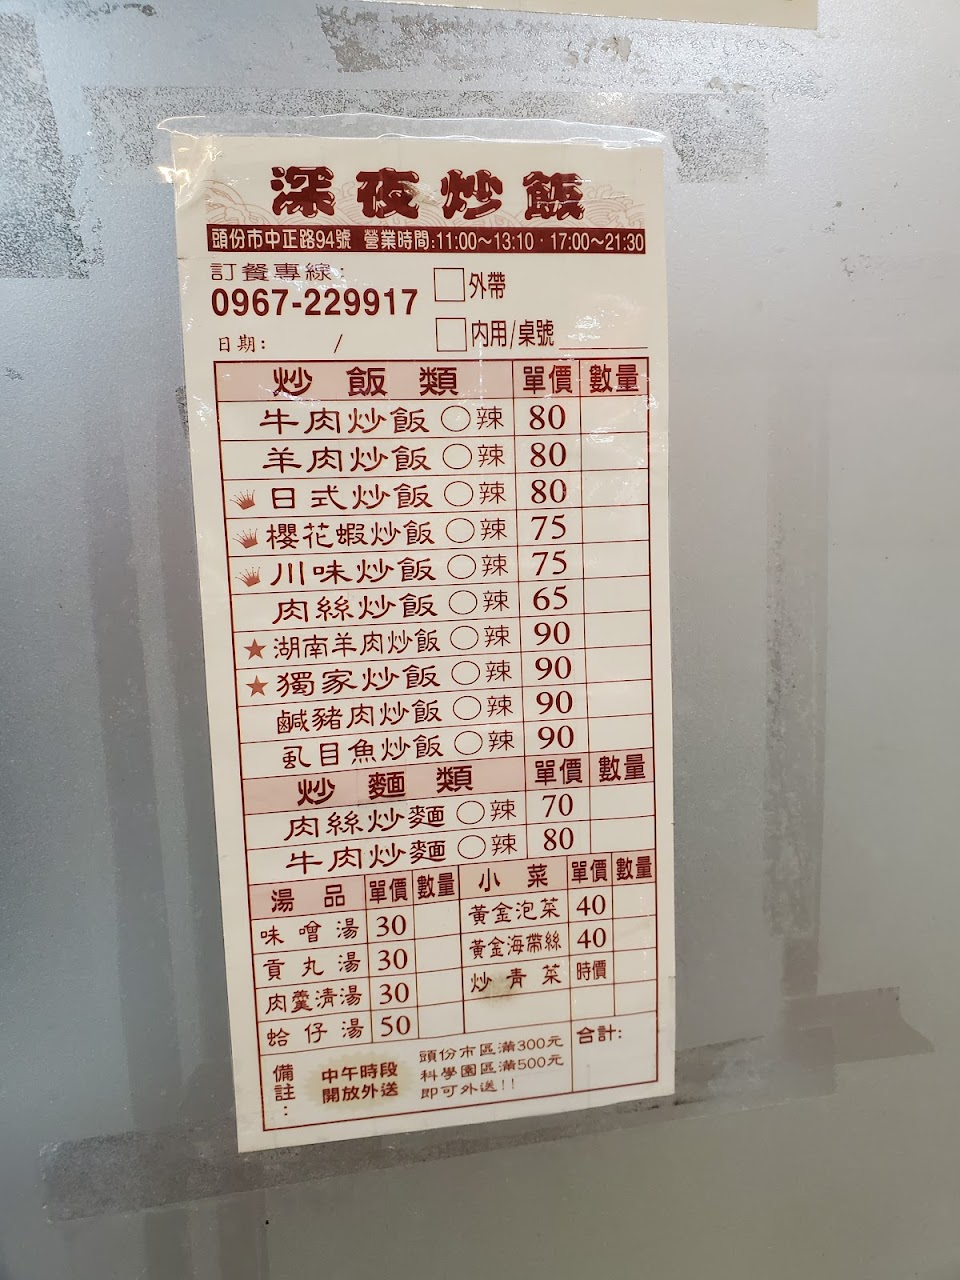 深夜炒飯
頭份市中正路94號 營業時間:11:00～13:10・17:00～21:30
訂餐專線:
0967-229917
外帶
日期: /
內用/桌號
炒飯類 單價 數量
牛肉炒飯 ○辣 80
羊肉炒飯 ○辣 80
日式炒飯 ○辣 80
櫻花蝦炒飯 ○辣 75
川味炒飯 ○辣 75
肉絲炒飯 ○辣 65
★湖南羊肉炒飯 ○辣 90
★獨家炒飯 ○辣 90
鹹豬肉炒飯 ○辣 90
虱目魚炒飯 ○辣 90
炒麵類 單價 數量
肉絲炒麵 ○辣 70
牛肉炒麵 ○辣 80
湯品 單價 數量
味噌湯 30
貢丸湯 30
肉羹清湯 30
蛤仔湯 50
小菜 單價 數量
黃金泡菜 40
黃金海帶絲 40
炒青菜 時價
備註:
中午時段
開放外送
頭份市區滿300元
科學園區滿500元
即可外送!!
合計: